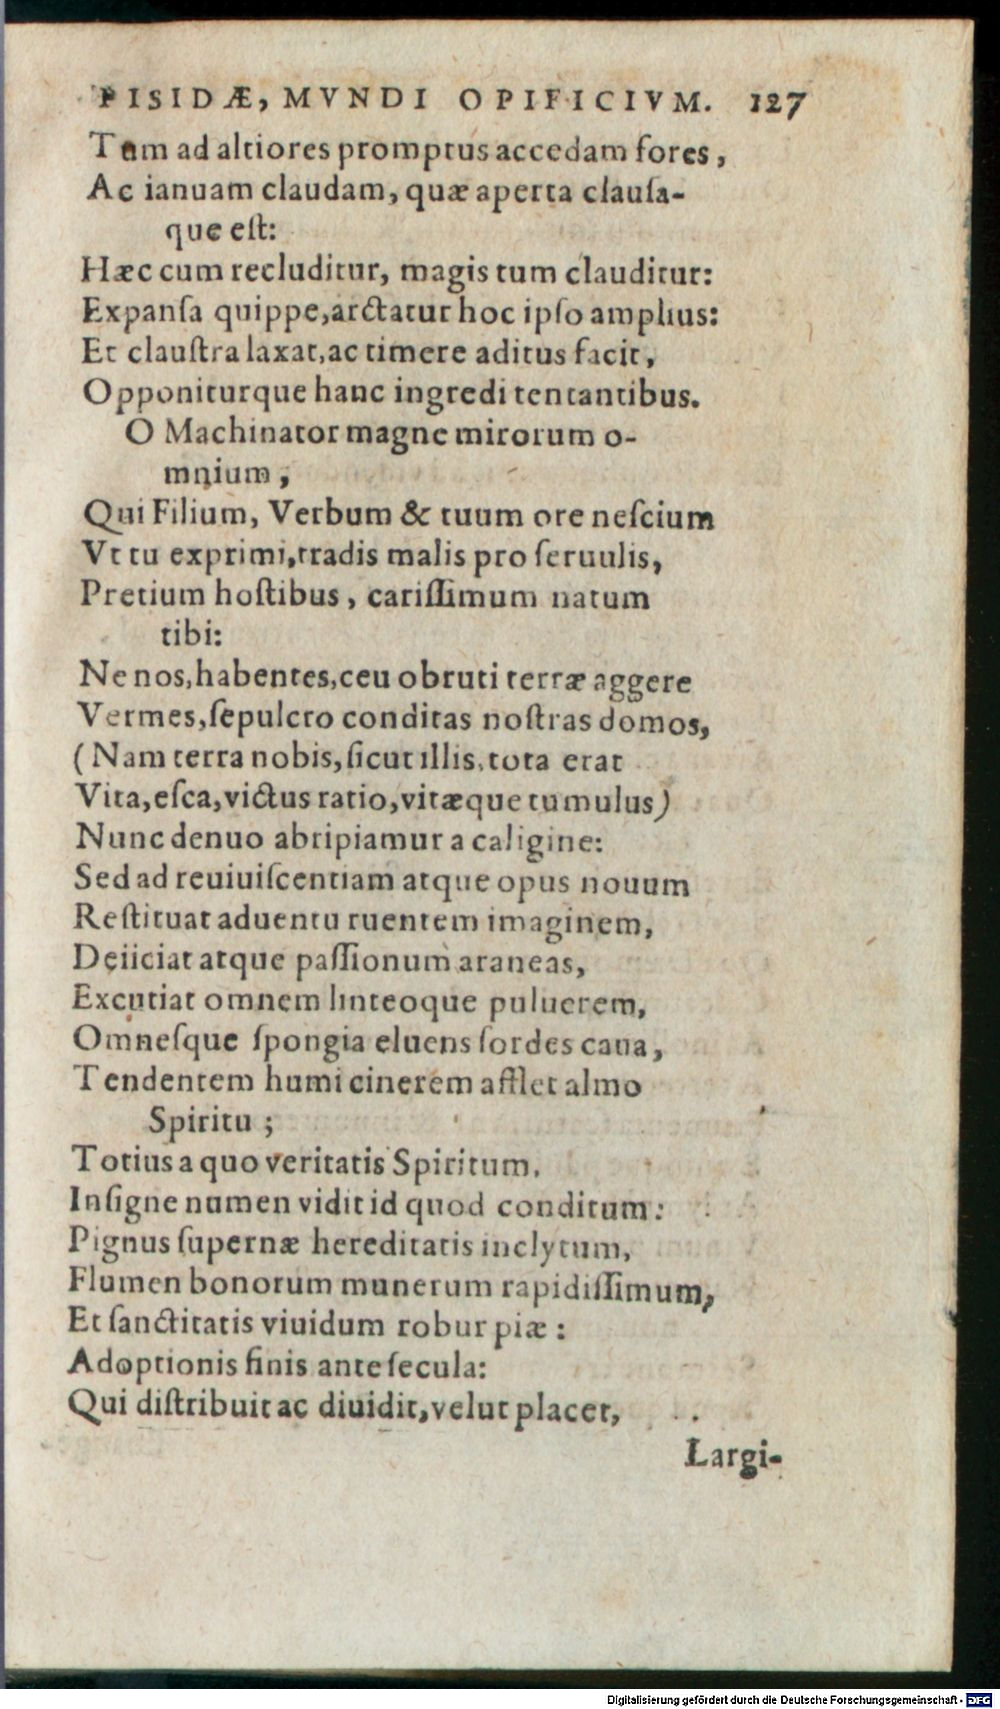 PISIDÆ, MVNDI OPIFICIVM. 127
Tum ad altiores promptus accedam fores,
Ac ianuam claudam, quæ aperta clausa-
que est:
Hæc cum recluditur, magis tum clauditur:
Expansa quippe, arctatur hoc ipso amplius:
Et claustra laxat, ac timere aditus facit,
Opponiturque hanc ingredi tentantibus.
O Machinator magne mirorum o-
mnium,
Qui Filium, Verbum & tuum ore nescium
Vt tu exprimi, tradis malis pro seruulis,
Pretium hostibus, carissimum natum
tibi:
Ne nos, habentes, ceu obruti terræ aggere
Vermes, sepulcro conditas nostras domos,
(Nam terra nobis, sicut illis, tota erat
Vita, esca, victus ratio, vitæque tumulus)
Nunc denuo abripiamur a caligine:
Sed ad reuiuiscentiam atque opus nouum
Restituat aduentu ruentem imaginem,
Deiiciat atque passionum araneas,
Excutiat omnem linteoque puluerem,
Omnesque spongia eluens sordes caua,
Tendentem humi cinerem afflet almo
Spiritu;
Totius a quo veritatis Spiritum,
Insigne numen vidit id quod conditum:
Pignus supernæ hereditatis inclytum,
Flumen bonorum munerum rapidissimum,
Et sanctitatis viuidum robur piæ:
Adoptionis finis ante secula:
Qui distribuit ac diuidit, velut placet,
Largi-
Digitalisierung gefördert durch die Deutsche Forschungsgemeinschaft - DFG